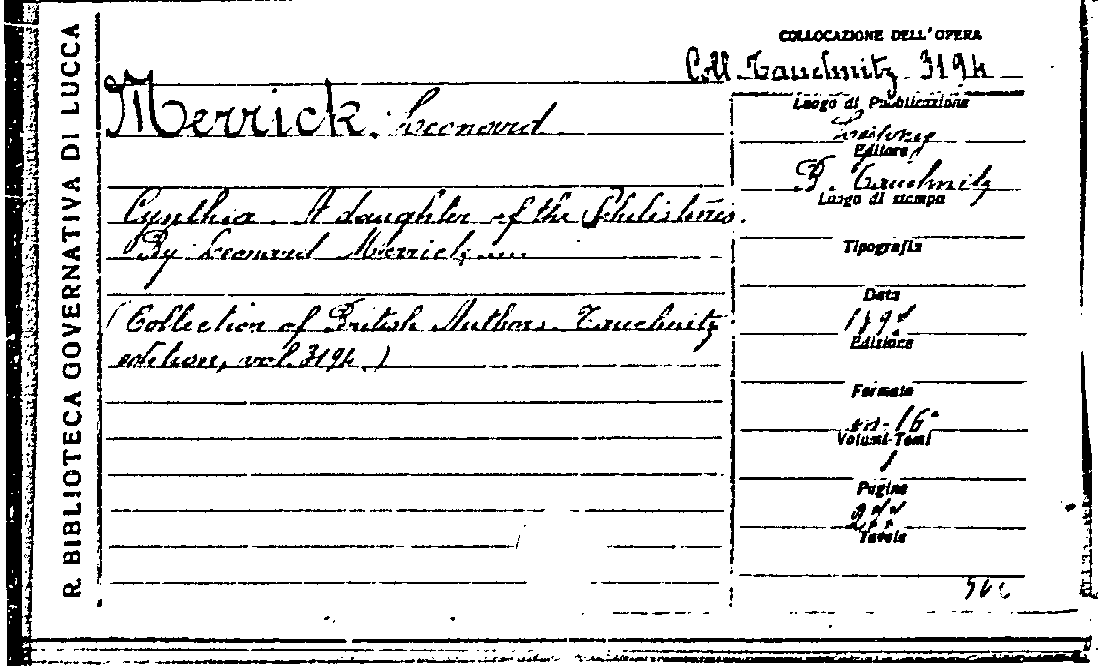 R. BIBLIOTECA GOVERNATIVA DI LUCCA
COLLOCAZIONE DELL'OPERA
Coll. Tauchnitz 3194
Merrick, Leonard
Cynthia. A daughter of the Philistines.
By Leonard Merrick....
(Collection of British Authors. Tauchnitz
edition, vol. 3194.)
Luogo di Pubblicazione
Leipzig
Editore
B. Tauchnitz
Luogo di stampa
Tipografia
Data
Edizione
Formato
in-16°
Volumi-Tomi
1
Pagine
Tavole